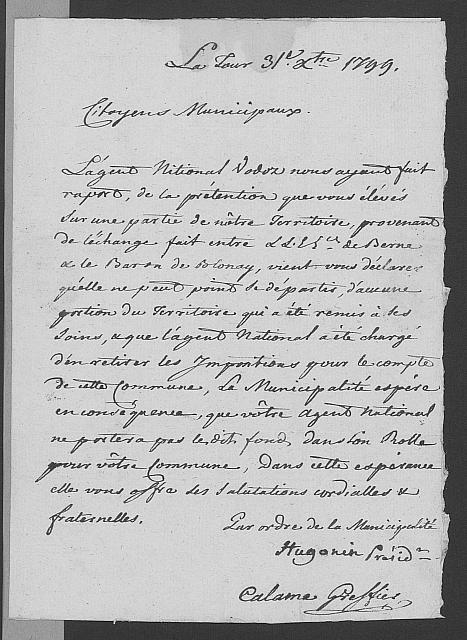 La Tour 31.e Xbre 1799.
Citoyens Municipaux.
L'agent National Vodoz nous ayant fait
raport, de la prétention que vous élévés
Sur une partie de nôtre Territoire, provenant
de l'échange fait entre LL.EE.ces de Berne
& le Baron de Blonay, vient vous déclarer
qu'elle ne peut point se départir, d'aucune
portion du Territoire qui a été remis à ses
Soins, & que l'agent National a été chargé
d'en retirer les Impositions pour le compte
de cette Commune, La Municipalité espére
en conséquence, que vôtre agent National
ne portera pas le dit fond, dans son Rolle
pour vôtre Commune, Dans cette espérance
elle vous offre ses Salutations cordialles &
fraternelles.
Par ordre de la Municipalité
Hugonin Présid.
Calame Greffier